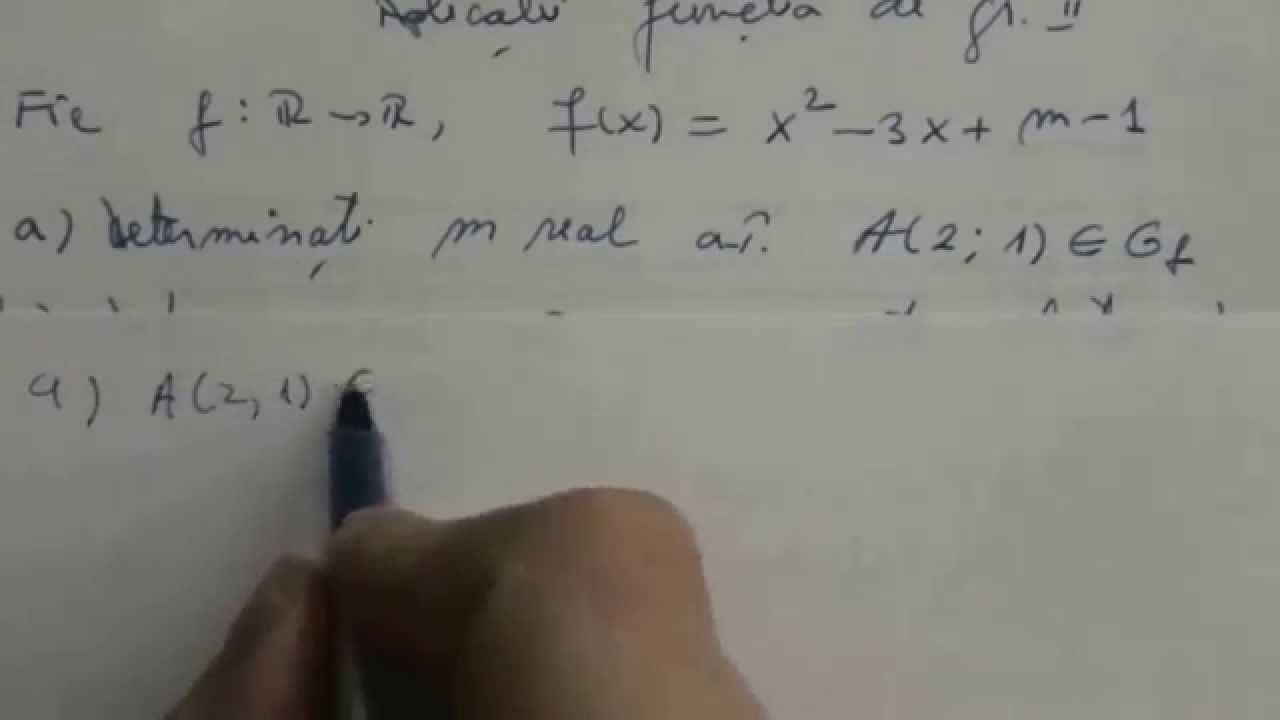 Aplicații funcția de gr. II
Fie f: ℝ → ℝ, f(x) = x² - 3x + m - 1
a) Determinați m real a.î. A(2; 1) ∈ G_f
a) A(2, 1) ∈